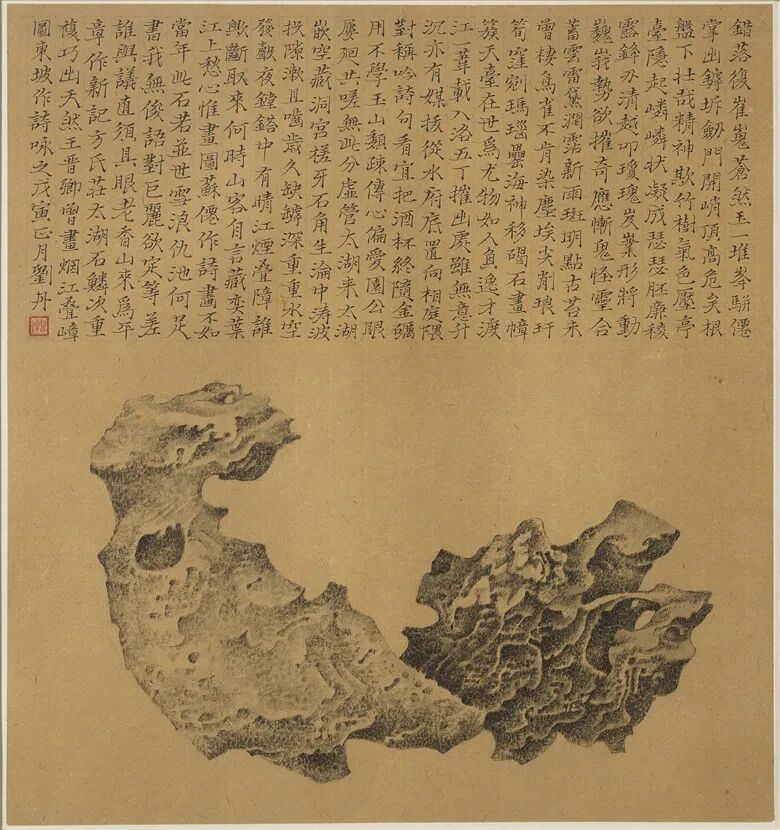 錯落復崔嵬蒼然玉一堆峯駢僊
掌出罅坼劒門開峭頂高危矣根
盤下壯哉精神欺竹樹氣色壓亭
臺隱起嶙嶙狀凝成瑟瑟胚廉稜
露鋒刃清越叩瓊瑰岌嶪形將動
巍峩勢欲摧奇應慚鬼怪靈合
蓄雲雷黛潤霑新雨斑明點古苔未
曾棲鳥雀不肯染塵埃尖削琅玕
筍窪剜瑪瑙罍海神移碣石畫幛
簇天臺在世爲尤物如人負逸才渡
江一葦載入洛五丁摧出處雖無意升
沉亦有媒拔從水府底置向相庭隈
對稱吟詩句看宜把酒杯終隨金礪
用不學玉山頹疎傅心偏愛園公眼
屢廻共嗟無此分虛管太湖来太湖
嵌空藏洞宮槎牙石角生淪中涛波
投隙漱且嚙歲久缺罅深重重水空
發聲夜鏜鎝中有晴江煙疊障誰
歟斷取來何時山客自言藏奕葉
江上愁心惟畫圖蘇僊作詩畫不如
當年此石若並世雪浪仇池何足
書我無俊語對巨麗欲定等差
誰與議直須具眼老香山來爲平
章作新記方氏莊太湖石鱗次重
複巧出天然王晉卿曾畫烟江疊嶂
圖東坡作詩詠之戊寅正月劉丹